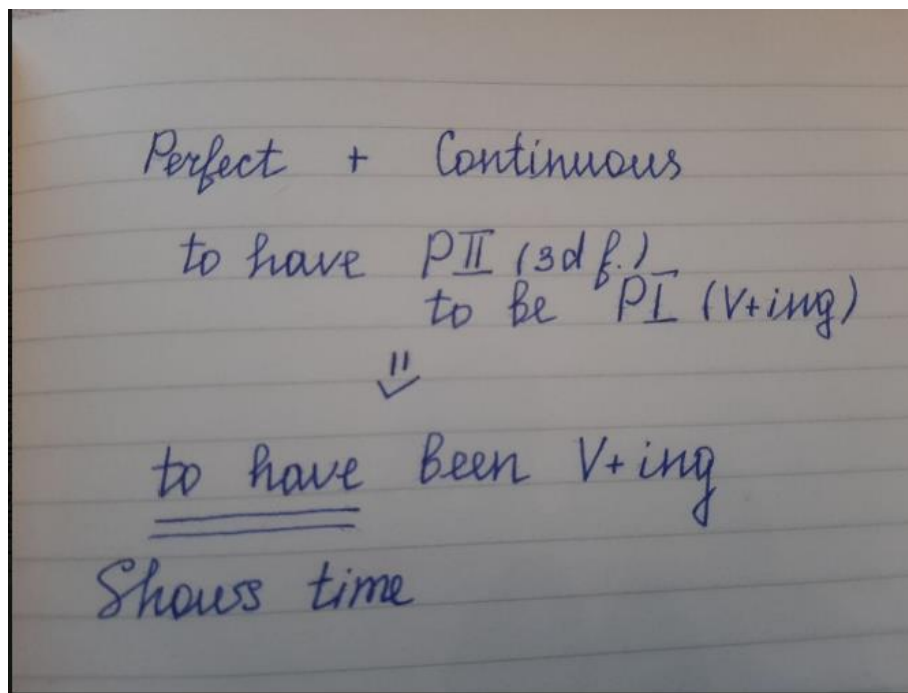 Perfect + Continuous
to have PII (3d f.)
to be PI (V+ing)
⇓
to have been V+ing
Shows time